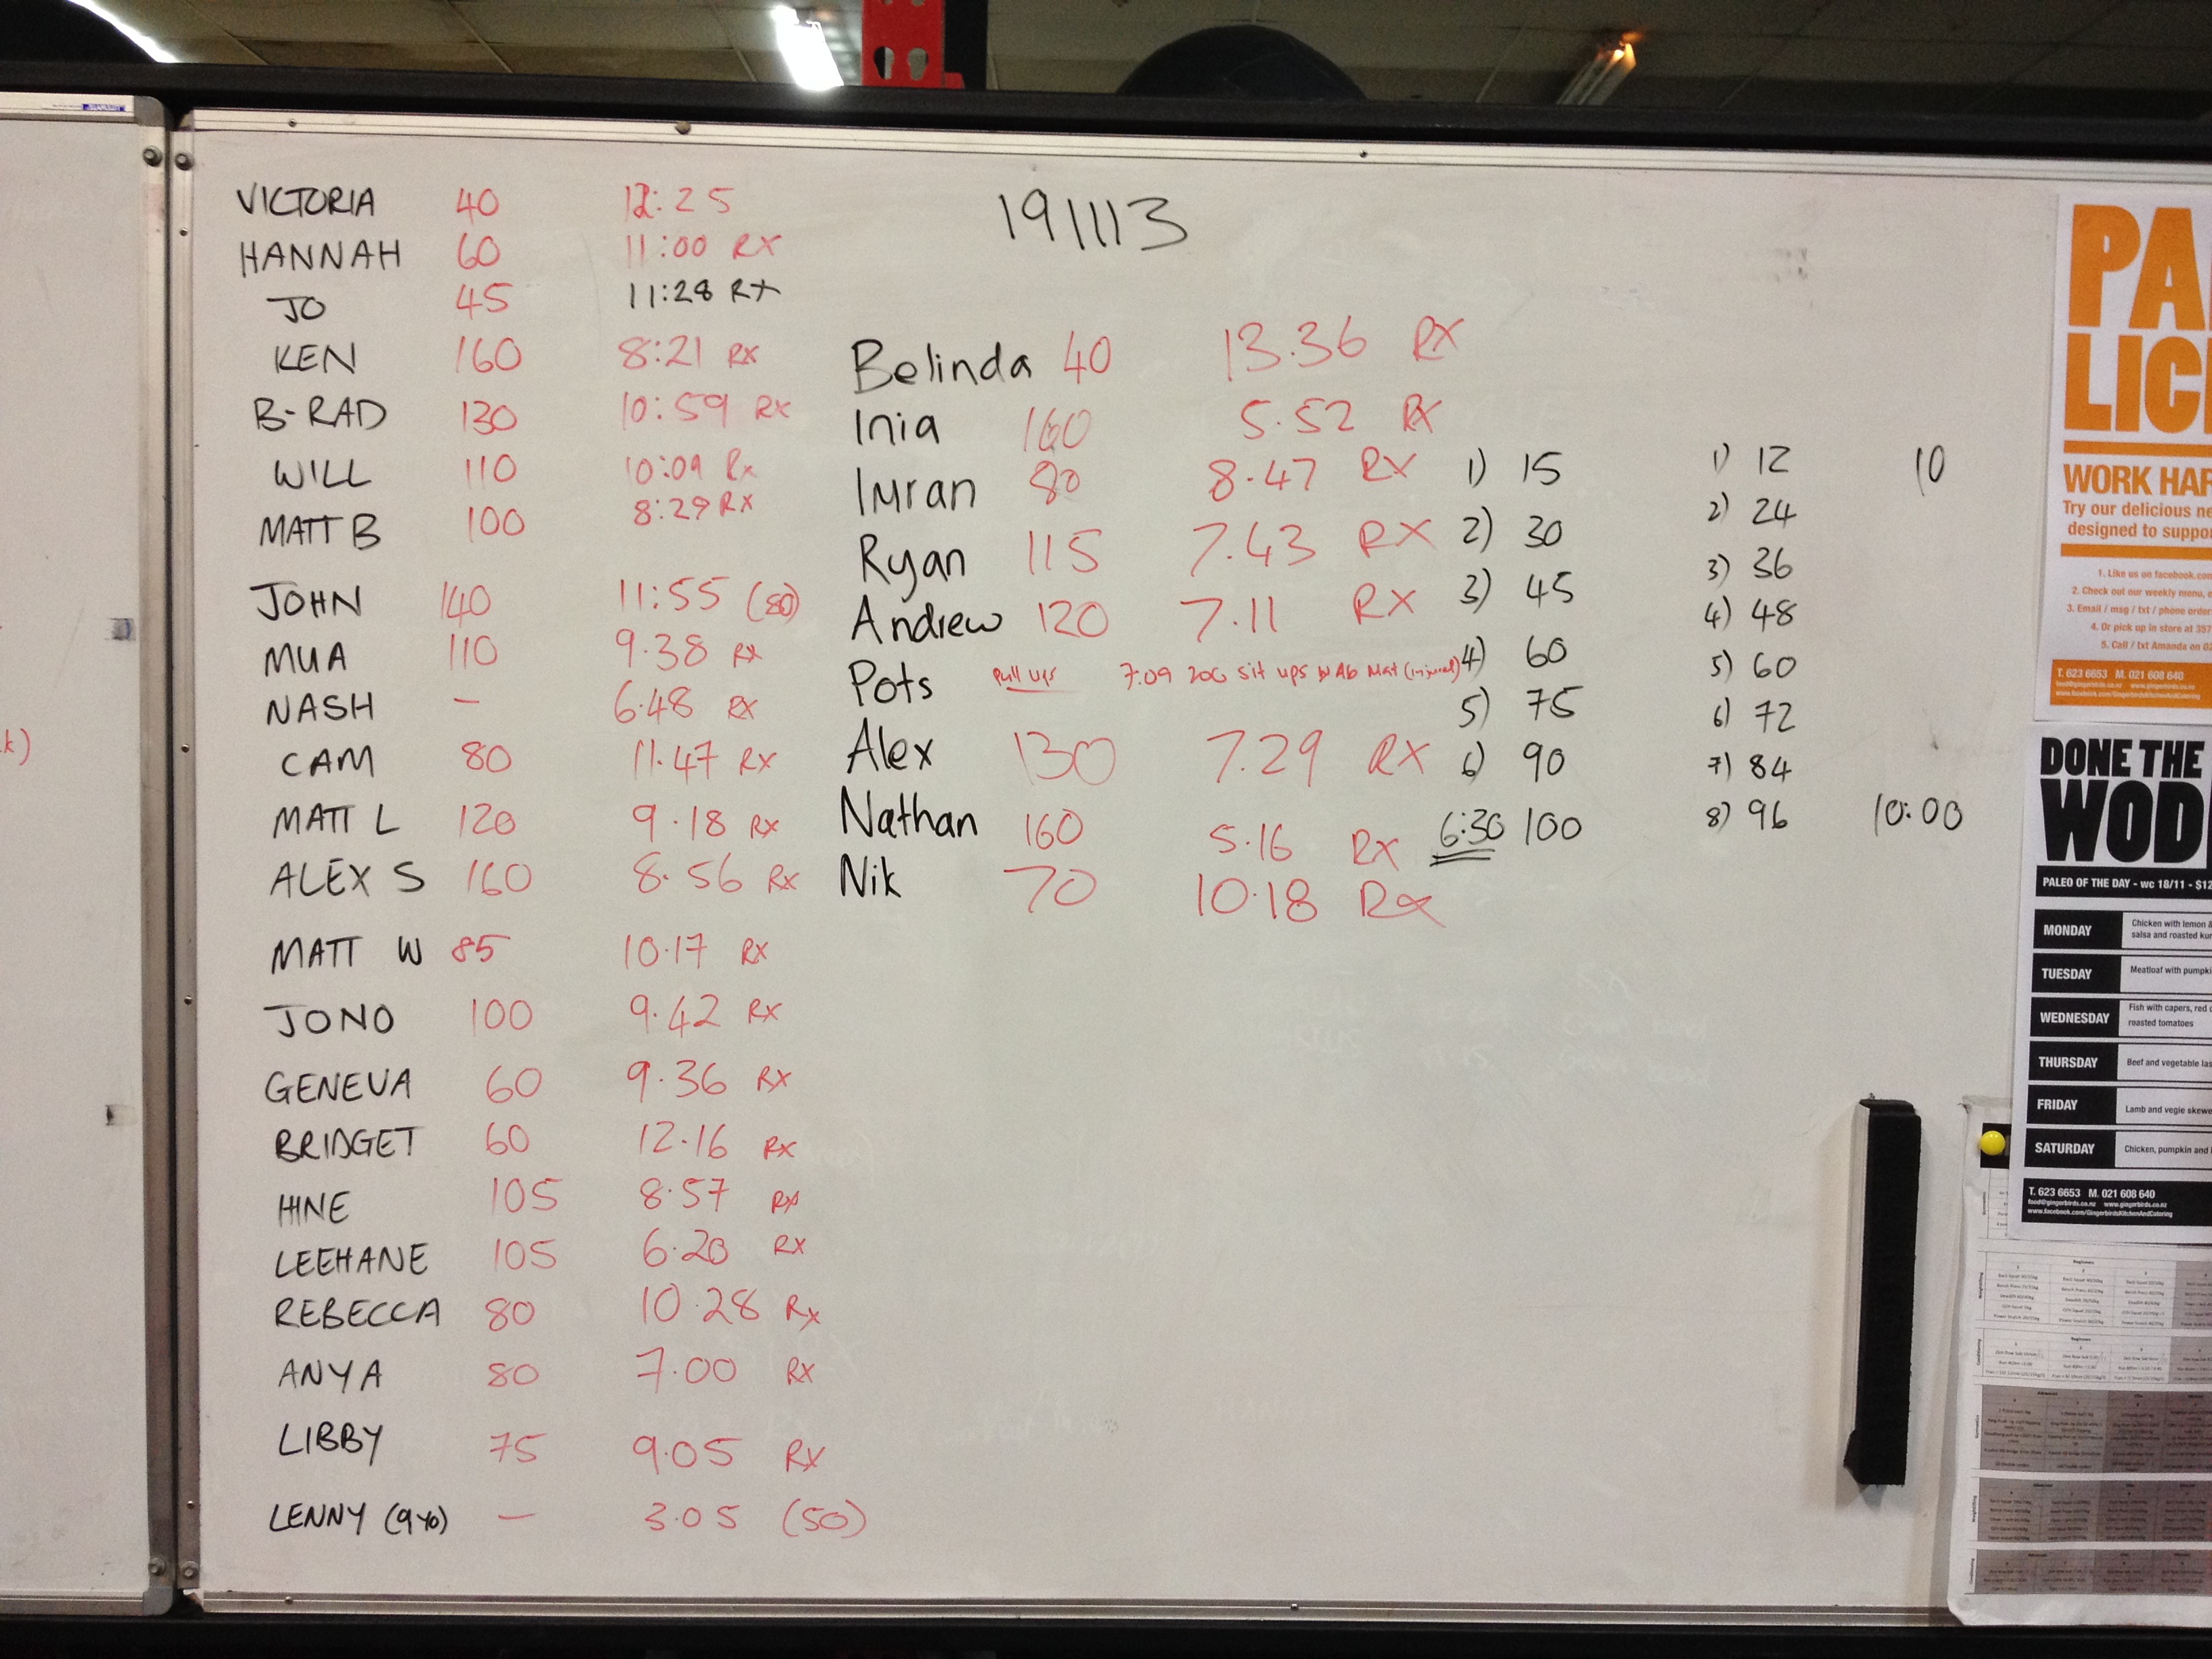 191113
VICTORIA 40 12:25
HANNAH 60 11:00 RX
JO 45 11:28 RX
KEN 160 8:21 RX
B-RAD 130 10:59 RX
WILL 110 10:09 Rx
MATT B 100 8:29 RX
JOHN 140 11:55 (80)
MUA 110 9.38 RX
NASH – 6.48 RX
CAM 80 11.47 RX
MATT L 120 9.18 RX
ALEX S 160 8.56 RX
MATT W 85 10.17 RX
JONO 100 9.42 RX
GENEVA 60 9.36 RX
BRIDGET 60 12.16 RX
HINE 105 8.57 RX
LEEHANE 105 6.20 RX
REBECCA 80 10.28 Rx
ANYA 80 7.00 RX
LIBBY 75 9.05 RX
LENNY (9yo) – 3.05 (50)
Belinda 40 13.36 RX
Inia 160 5.52 RX
Imran 80 8.47 RX
Ryan 115 7.43 RX
Andrew 120 7.11 RX
Pots Pull ups 7:09 200 Sit ups Ab Mat (injured)
Alex 130 7.29 RX
Nathan 160 5.16 RX
Nik 70 10.18 Rx
1) 15
2) 30
3) 45
4) 60
5) 75
6) 90
6:30 100
1) 12 10
2) 24
3) 36
4) 48
5) 60
6) 72
7) 84
8) 96 10:00
k)
PA
LIC
WORK HAR
Try our delicious ne
designed to suppo
1. Like us on facebook.com
2. Check out our weekly menu,
3. Email / msg / txt / phone order
4. Or pick up in store at 357
5. Call / txt Amanda on 02
T. 623 6653 M. 021 608 640
food@gingerbirds.co.nz www.gingerbirds.co.nz
www.facebook.com/GingerbirdsKitchenAndCatering
DONE THE
WOD
PALEO OF THE DAY - wc 18/11 - $12
MONDAY Chicken with lemon &
salsa and roasted kum
TUESDAY Meatloaf with pumpki
WEDNESDAY Fish with capers, red o
roasted tomatoes
THURSDAY Beef and vegetable las
FRIDAY Lamb and vegie skewe
SATURDAY Chicken, pumpkin and
T. 623 6653 M. 021 608 640
food@gingerbirds.co.nz www.gingerbirds.co.nz
www.facebook.com/GingerbirdsKitchenAndCatering